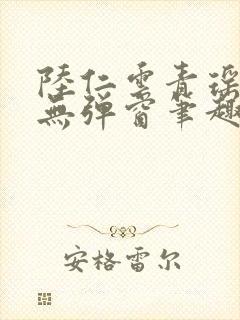 陸仁雲青瑤
無彈窗筆趣
安格雷尔